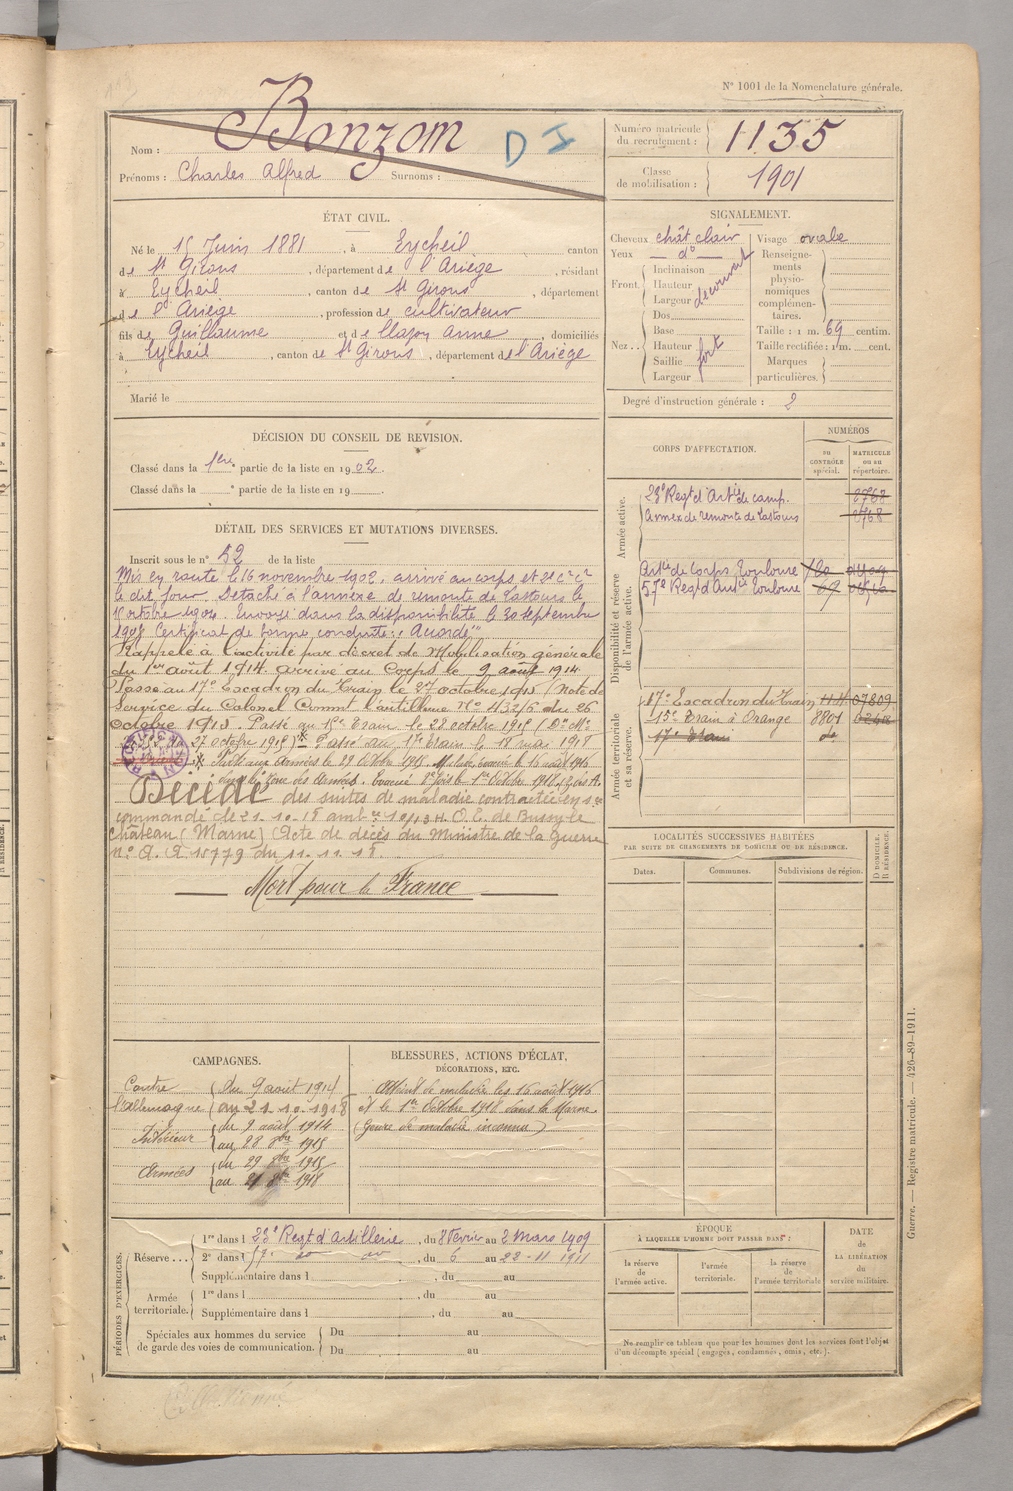 N° 1001 de la Nomenclature générale.
Nom : Bonzom
D I
Prénoms : Charles Alfred Surnoms :
Numéro matricule du recrutement : 1135
Classe de mobilisation : 1901
ÉTAT CIVIL.
Né le 15 Juin 1881, à Eycheil canton
de St Girons, département de l'Ariège, résidant
à Eycheil, canton de St Girons, département
de l'Ariège, profession de cultivateur
fils de Guillaume et de Anne, domiciliés
à Eycheil, canton de St Girons, département de l'Ariège
Marié le
SIGNALEMENT.
Cheveux chât clair
Yeux d°
Front : Inclinaison
Hauteur
Largeur
découvert
Nez : Dos
Base
Hauteur
Saillie
Largeur
fort
Visage ovale
Renseignements physionomiques complémentaires.
Taille : 1 m. 69 centim.
Taille rectifiée : 1 m. cent.
Marques particulières.
Degré d'instruction générale : 2
DÉCISION DU CONSEIL DE REVISION.
Classé dans la 1ère partie de la liste en 1902.
Classé dans la e partie de la liste en 19
DÉTAIL DES SERVICES ET MUTATIONS DIVERSES.
Inscrit sous le n° 52 de la liste
Mis en route le 16 novembre 1902, arrivé au corps et 2e Cr Ct
le dit jour. Détaché à l'annexe de remonte de Lastours le
octobre 1904. Envoyé dans la disponibilité le 30 septembre
1905 Certificat de bonne conduite : "Accordé"
Rappelé à l'activité par décret de Mobilisation générale
du 1er août 1914 arrivé au Corps le 9 août 1914.
Passé au 17e Escadron du Train le 27 octobre 1915 (Note de
Service du Colonel Commt l'artillerie N° 1132/6 du 26
octobre 1915. Passé au 15e Train le 28 octobre 1915 (
27 octobre 1915) Passé au Train le 18 mai 1918
RECTIFICATION
Parti aux armées le 29 Octobre 1915. Malade, évacué le 16 août 1916
zone des armées. Évacué le 1er Octobre 1918
Décédé des suites de maladie contractée en
commandé le 21.10.18 amb. 10/13 H.O.E. de Bussy le
Château (Marne) (Acte de décès du Ministre de la Guerre
n° 15779 du 11.11.18.
Mort pour la France
CORPS D'AFFECTATION.
NUMÉROS
au CONTRÔLE spécial.
MATRICULE ou au répertoire.
Armée active.
23e Regt d'Artie de camp. 8768
Annexe de remonte de Lastours 8768
Disponibilité et réserve de l'armée active.
Artie de Corps Toulouse
57e Regt d'Artie Toulouse
Armée territoriale et sa réserve.
17e Escadron du Train 07809
15e Train à Orange 8801
17e Train
LOCALITÉS SUCCESSIVES HABITÉES
PAR SUITE DE CHANGEMENTS DE DOMICILE OU DE RÉSIDENCE.
Dates. Communes. Subdivisions de région.
D DOMICILE.
R RÉSIDENCE.
CAMPAGNES.
Contre l'Allemagne
du 9 août 1914
au 21.10.1918
Intérieur
du 9 août 1914
au 28 8bre 1915
Armées
du 29 8bre 1915
au 21 8bre 1918
BLESSURES, ACTIONS D'ÉCLAT,
DÉCORATIONS, ETC.
Atteint de maladie les 16 août 1916
et le 1er Octobre 1918 dans la Marne.
(Genre de maladie inconnu)
PÉRIODES D'EXERCICES.
Réserve... 1re dans l 23e Regt d'Artillerie, du 8 Février au 2 Mars 1909
2e dans l 57e d° d°, du 6 au 22-11 1911
Supplémentaire dans l , du au
Armée territoriale. 1re dans l , du au
Supplémentaire dans l , du au
Spéciales aux hommes du service de garde des voies de communication.
Du au
Du au
ÉPOQUE
À LAQUELLE L'HOMME DOIT PASSER DANS :
la réserve de l'armée active.
l'armée territoriale.
la réserve de l'armée territoriale
DATE de LA LIBÉRATION du service militaire.
Ne remplir ce tableau que pour les hommes dont les services font l'objet
d'un décompte spécial (engagés, condamnés, omis, etc.).
Guerre. — Registre matricule. — 426-89-1911.